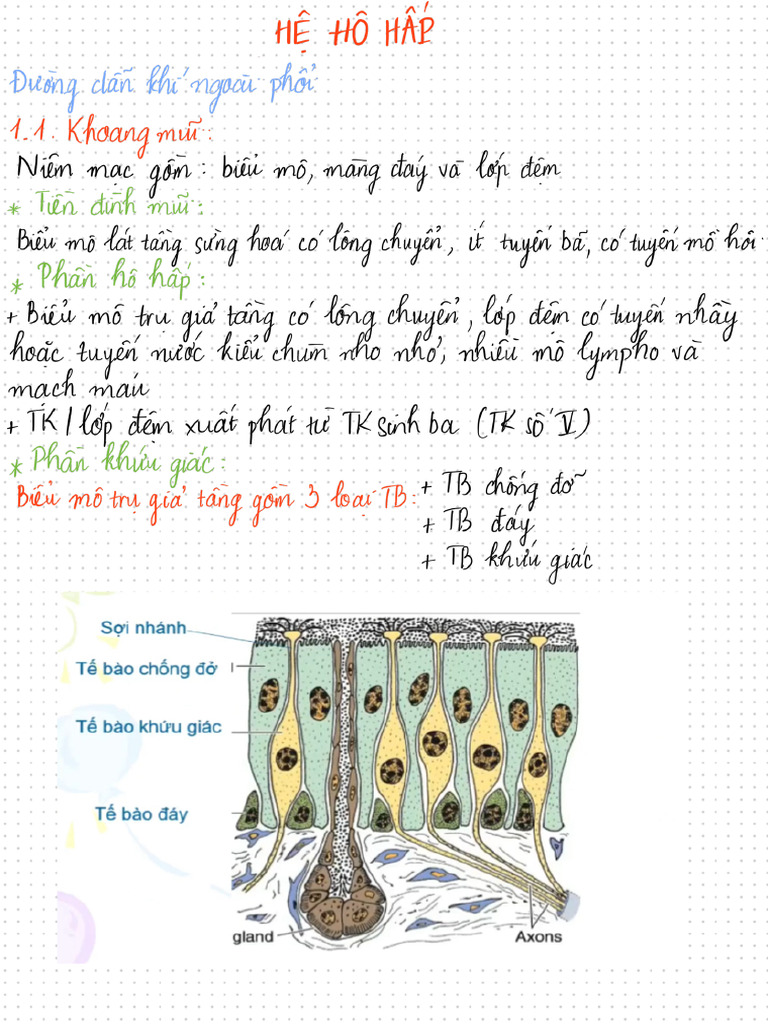 HỆ HÔ HẤP
Đường dẫn khí ngoài phổi
1.1. Khoang mũi:
Niêm mạc gồm: biểu mô, màng đáy và lớp đệm
* Tiền đình mũi:
Biểu mô lát tầng sừng hoá có lông chuyển, ít tuyến bã, có tuyến mồ hôi
* Phần hô hấp:
+ Biểu mô trụ giả tầng có lông chuyển, lớp đệm có tuyến nhầy
hoặc tuyến nước kiểu chùm nho nhỏ, nhiều mô lympho và
mạch máu
+ TK/lớp đệm xuất phát từ TK sinh ba (TK số V)
* Phần khứu giác:
Biểu mô trụ giả tầng gồm 3 loại TB: + TB chống đỡ
+ TB đáy
+ TB khứu giác
Sợi nhánh
Tế bào chống đở
Tế bào khứu giác
Tế bào đáy
gland
Axons